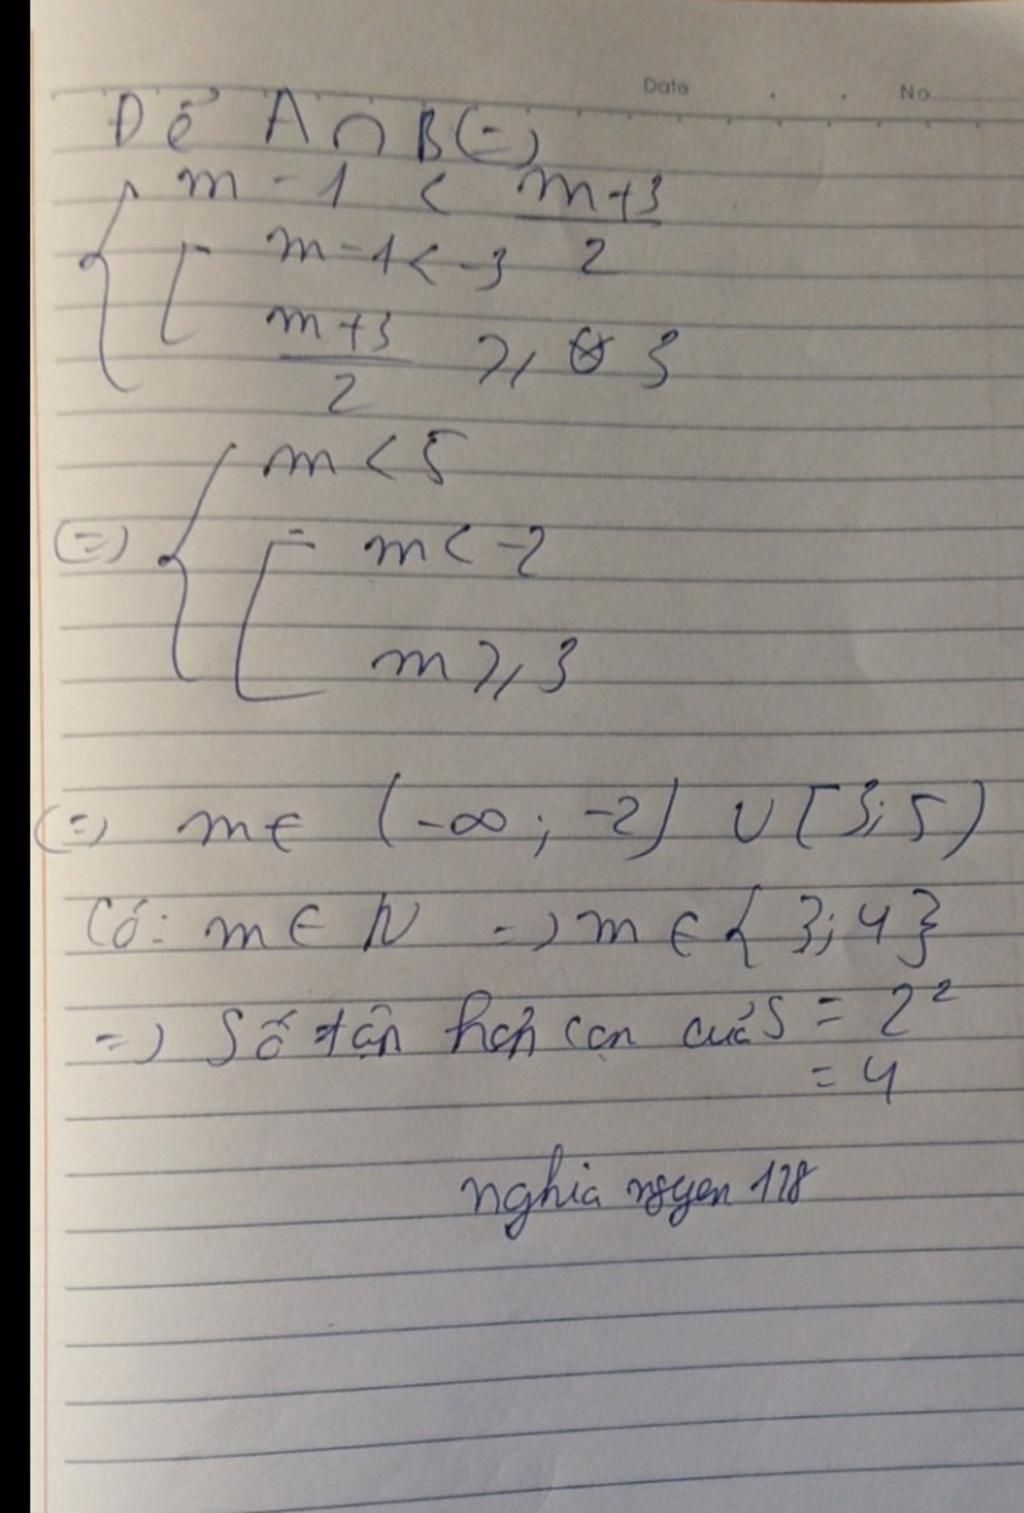 Date . . No
Để A ∩ B (=)
m - 1 < m+3/2
m-1 < -3
m+3/2 ≥ 3
(=) m < 5
m < -2
m ≥ 3
(=) m ∈ (-∞; -2) ∪ [3; 5)
Có: m ∈ N => m ∈ {3; 4}
=> Số tận hẻn con củaS = 2²
= 4
nghia ngyen 128